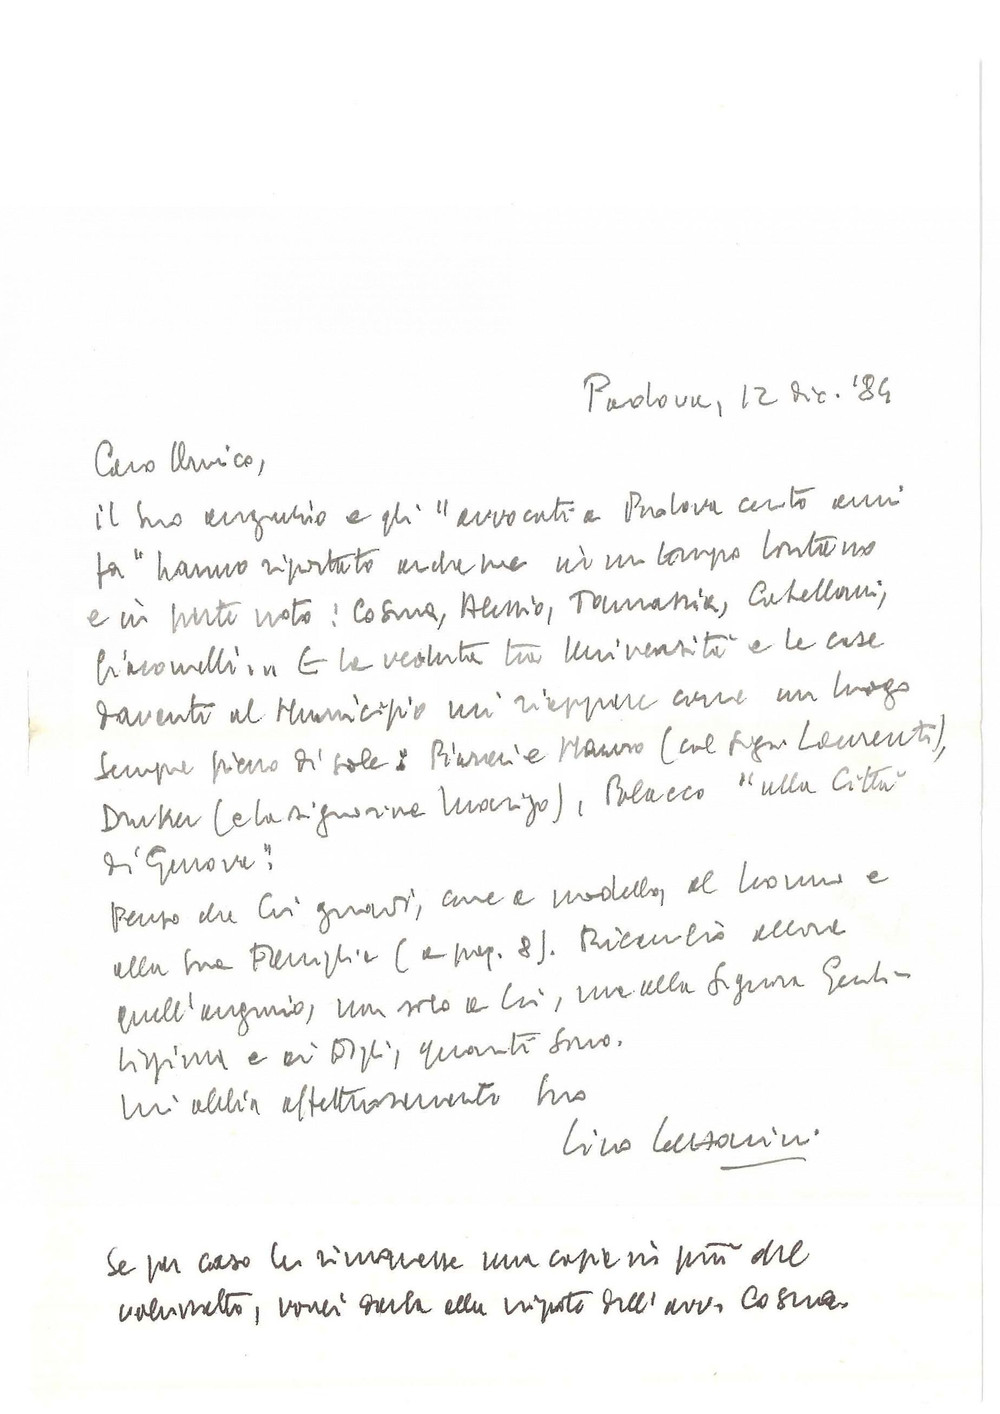 Padova, 12 dic. '84
Caro Amico,
il Suo augurio e gli "avvocati a Padova cento anni
fa" hanno riportato anche me in un tempo lontano
e in parte noto: Cosma, Alessio, Tamassia, Catellani,
Giacomelli... E la veduta tra Università e le case
davanti al Municipio mi riappare come un luogo
sempre pieno di sole: e Mauro (col sign. Laurenti),
Druker (e la signorina Marigo), Polacco "alla Città
di Genova".
Penso che Lei guardi, come a modello, al nonno e
alla Sua Famiglia (a pag. 8). Ricambio allora
quell'augurio, non solo a Lei, ma alla Signora Genti-
lissima e ai Figli, quanti sono.
Mi abbia affettuosamente Suo
Lino Lazzarini
Se per caso Le rimanesse una copia in più del
volumetto, vorrei darla alla nipote dell'avv. Cosma.